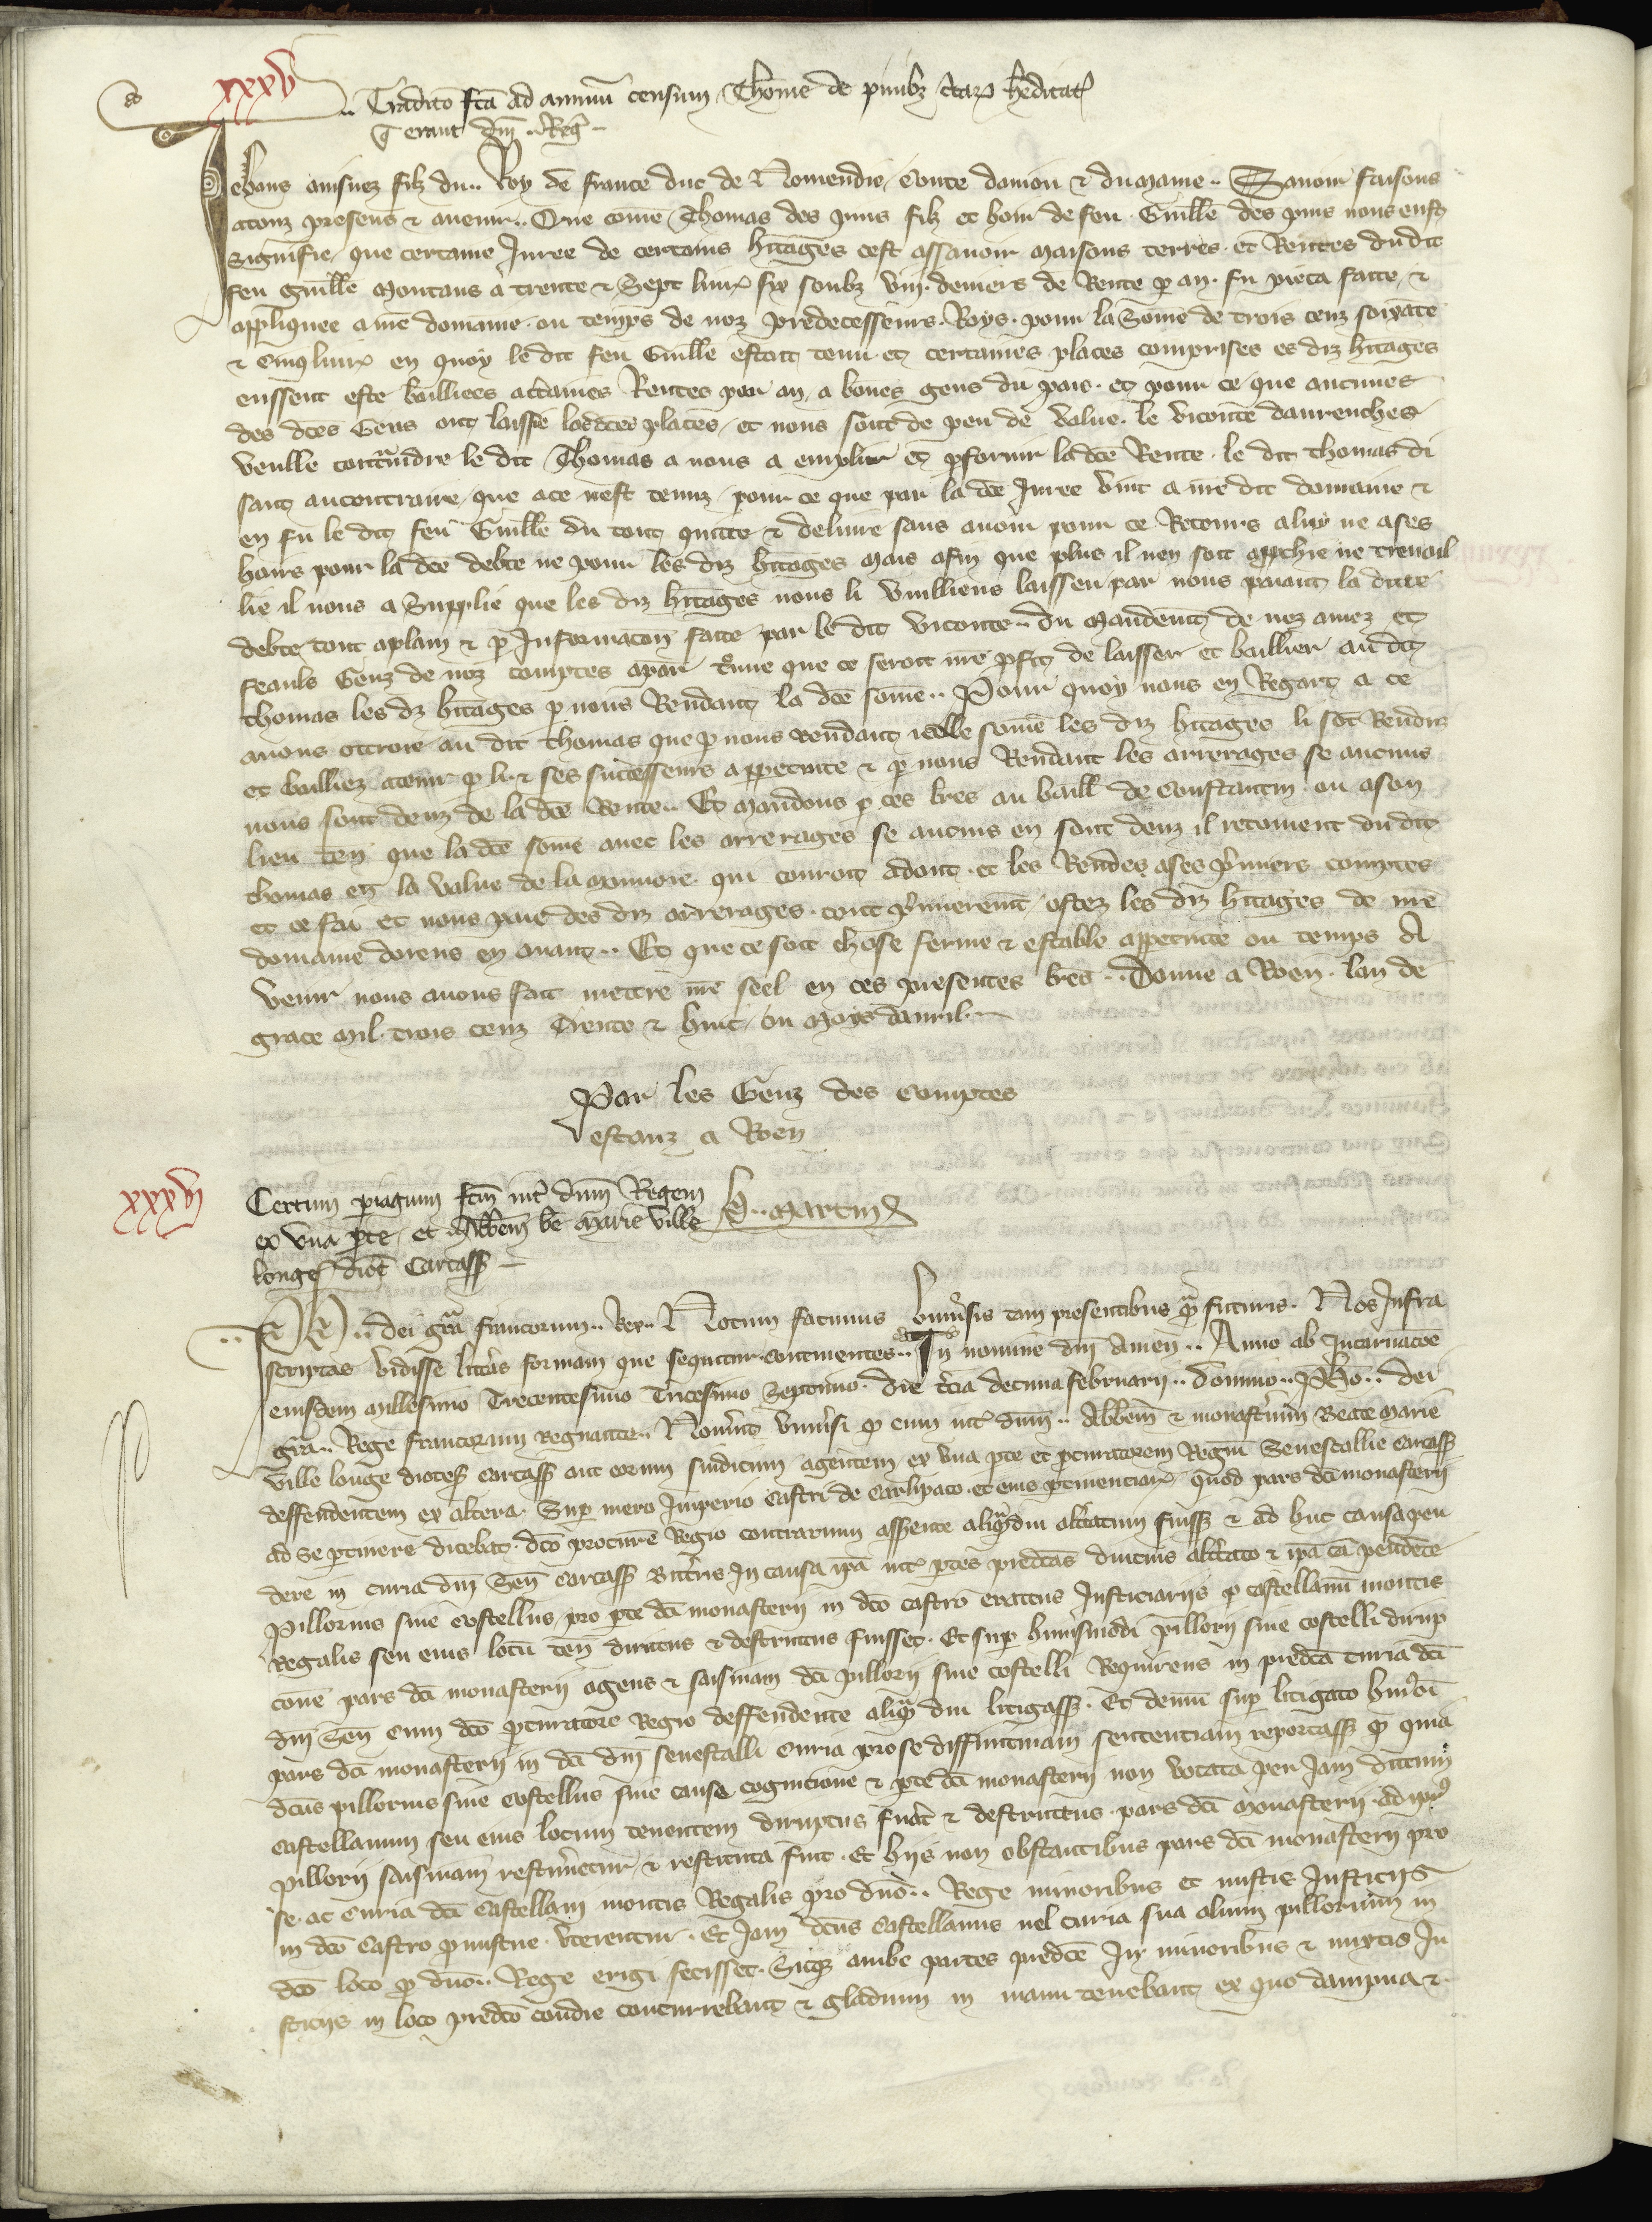 xxxv
Tradico fca ad annuu censum Thome de pinibz ctar heditat
q erant dni Reg
Jehans ainsnez filz du Roy de France duc de Normendie Conte danjou et du Maine Savoir faisons
a touz presens et avenir Que come Thomas des pins filz et hoir de feu Guille des pins nous eust
signifie que certaine Juree de certains hitages cest assavoir maisons terres et Rentes du dit
feu Guille montans a trente et Sept livr six soubz viij deniers de Rente p an fu pieca faite et
appliquee a nre domaine ou temps de noz predecesseurs Roys pour la Some de trois cenz soixate
et cinq livr en quoy le dit feu Guille estoit tenu et certaines places comprises es diz hitages
eussent este bailliees a ctaines Rentes par an a bones gens du pais et pour ce que aucunes
des dces Gens ont laissie les dces places et nous sont de peu de value le viconte davrenches
veulle contraindre le dit Thomas a nous a emplir et pfornir la dce Rente le dit thomas di
sant au contraire que a ce nest tenuz pour ce que par la dce Juree vint a nre dit domaine et
en fu le dit feu Guille du tout quitte et delivre sans avoir pour ce Retours a luy ne a ses
hoirs pour la dce debte ne pour les diz hitages mais afin que plus il nen soit appchie ne travail
lie il nous a Supplie que les diz hitages nous li vuilliens laissier par nous paiant la dicte
debte tout a plain et p Informacon faite par le dit viconte du mandemt de noz amez et
feauls Genz de noz comptes apar trouve que ce seroit nre pfit de laisser et baillier au dit
thomas les diz hitages p nous Rendant la dce some Pour quoy nous en Regart a ce
avons ottroie au dit thomas que p nous rendant icelle some les diz hitages li sot Renduz
et bailliez a tenir p li et ses successeurs a ppetuite et p nous Rendant les arrerages se aucuns
nous sont deuz de la dce Rente Et mandons p ces lres au baill de Constantin ou a son
lieu ten que la dce some avec les arrerages se aucuns en sont deuz il retoivent du dit
thomas en la value de la monnoie qui couroit adont et les Rendes a ses pmiers comptes
et ce fait et nous paie des diz arrerages tout pmieremt ostez les diz hitages de nre
domaine dorens en avant Et que ce soit chose ferme et estable a ppetuite ou temps A
venir nous avons fait mettre nre seel en ces presentes lres Donne a Roen lan de
grace mil trois cenz Trente et huit ou moys davril
Par les Genz des comptes
estanz a Roen
xxxvj
Certum pariagium fcm int dnm Regem
ex una pte et Abbem be Marie ville
longe dioc Carcass
H Martin
Ph dei gra francorum Rex Notum facimus universis tam presentibus qua futuris Nos Infra
scriptas vidisse litteras formam que sequitur continentes In nomine dni Amen Anno ab Incarnacoe
eiusdem millesimo Trecentesimo Tricesimo Septimo die tcia decima februarii domino Pho dei
gra Rege francorum regnante Noverit universi q cum int dnm Abbem et monasterium Beate Marie
ville longe dioces Carcass aut eorum sindicum agentem ex una pte et pcuratorem Regiu Senescallie Carcass
deffendentem ex altera Sup mero Imperio castri de Carlipaco et eius ptinenciar quod pars dci monasterii
ad se ptinere dicebat dco procure Regio contrarium assente aliqdiu altcatum fuiss et ad huc causa pen
dere in curia dni Sen Carcass Bittris In causa ipa int ptes predcas diucius altcato et ipa ca pendete
Pillorius sive costellus pro pte dci monasterii in dco castro erectus Justiciariis p castellanu montis
Regalis seu eius locu ten dirutus et destructus fuisset Et sup huiusmodi pillorii sive costelli dirup
cione pars dci monasterii agens et saisinam dci pillorii sive costelli Requirens in predca curia dci
dni Sen cum dco pcuratore Regio deffendente aliq diu litigass Et demu sup litigato humoi
pars dci monasterii in dci dni senescalli curia pro se diffinitivam sentenciam reportass q quia
dcus pillorius sive costellus sine cause cognicione et pte dci monasterii non vocata per Jam dictum
castellanum seu eius locum tenentem diruptus fuat et destructus pars dci monasterii ad ipis
pillorii saisinam restitueretur et restituta fuit Et hiis non obstantibus pars dci monasterii pro
se ac curia dci castellani montis Regalis pro dno Rege minoribus et mistis Justiciis
in dco castro pmiscue uterentur Et Jam dcus castellanus vel curia sua alium pillorium in
dco loco p dno Rege erigi fecisset Sicq ambe partes predce In minoribus et mixtis Ju
sticiis in loco predco cotidie concurrebant et gladium in manu tenebant ex quo dampna et